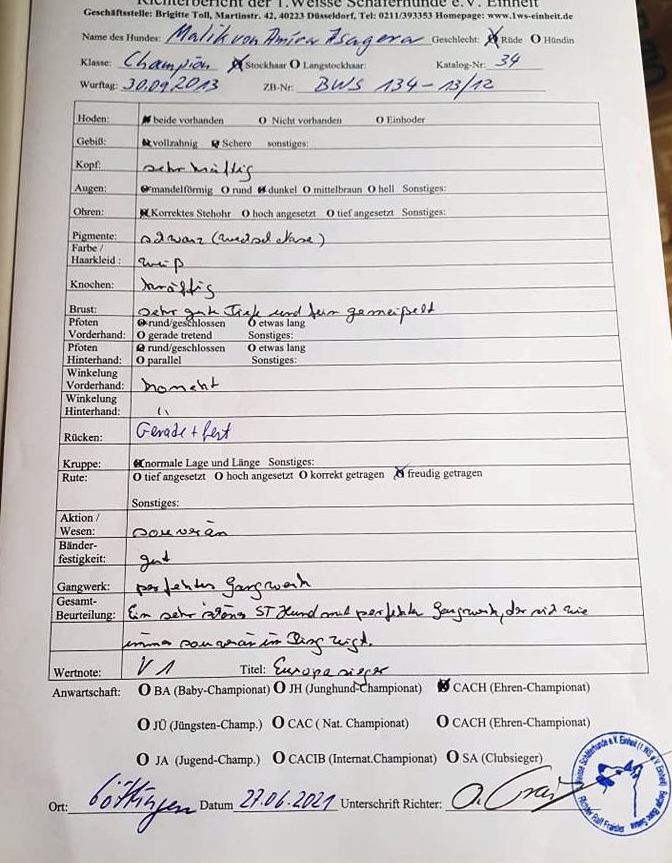 Richterbericht der 1.Weisse Schäferhunde e.V. Einheit
Geschäftsstelle: Brigitte Toll, Martinstr. 42, 40223 Düsseldorf, Tel: 0211/393353 Homepage: www.1ws-einheit.de
Name des Hundes: Malik von Amira Asagera Geschlecht: Rüde O Hündin
Klasse: Champion Stockhaar O Langstockhaar: Katalog-Nr: 34
Wurftag: 30.09.2013 ZB-Nr: BWS 134-13/12
Hoden: beide vorhanden O Nicht vorhanden O Einhoder
Gebiß: vollzahnig Schere sonstiges:
Kopf: sehr kräftig
Augen: mandelförmig O rund dunkel O mittelbraun O hell Sonstiges:
Ohren: Korrektes Stehohr O hoch angesetzt O tief angesetzt Sonstiges:
Pigmente: schwarz (Wechselnase)
Farbe /
Haarkleid : weiß
Knochen: kräftig
Brust: sehr gute Tiefe und fein gemeißelt
Pfoten rund/geschlossen O etwas lang
Vorderhand: O gerade tretend Sonstiges:
Pfoten rund/geschlossen O etwas lang
Hinterhand: O parallel Sonstiges:
Winkelung
Vorderhand: korrekt
Winkelung
Hinterhand: "
Rücken: Gerade + fest
Kruppe: normale Lage und Länge Sonstiges:
Rute: O tief angesetzt O hoch angesetzt O korrekt getragen freudig getragen
Sonstiges:
Aktion /
Wesen: souverän
Bänder-
festigkeit: gut
Gangwerk: perfektes Gangwerk
Gesamt-
Beurteilung: Ein sehr schöner ST Hund mit perfektem Gangwerk, der sich wie
immer souverän im Ring zeigt.
Wertnote: V 1 Titel: Europasieger
Anwartschaft: O BA (Baby-Championat) O JH (Junghund-Championat) CACH (Ehren-Championat)
O JÜ (Jüngsten-Champ.) O CAC ( Nat. Championat) O CACH (Ehren-Championat)
O JA (Jugend-Champ.) O CACIB (Internat.Championat) O SA (Clubsieger)
Ort: Göttingen Datum 27.06.2021 Unterschrift Richter: